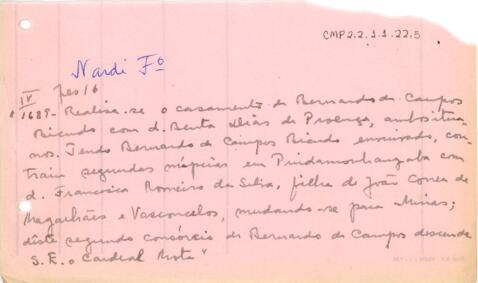 CMP2.2.1.1.22.5
Nardi Fº
IV pes 16
1689 - Realisa-se o casamento de Bernardo de Campos
Bicudo com d. Benta Dias de Proença, ambos itua-
nos. Tendo Bernardo de Campos Bicudo enviuvado, con-
train segundas núpcias em Pindamonhangaba com
d. Francisca Romeiro da Silva, filha de João Correa de
Magalhães e Vasconcelos, mudando-se para Minas;
dêste segundo consórcio de Bernardo de Campos descende
S. E. o Cardeal Mota"